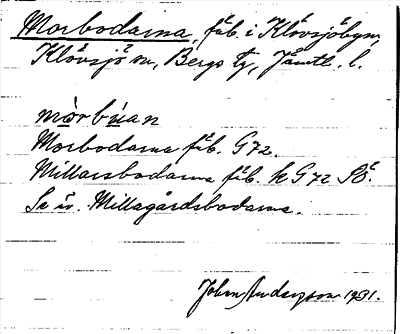 Morbodarna, fäb. i Klövsjöbyn,
Klövsjö sn, Bergs tg, Jämtl. l.
mòrbúan
Morbodarna fäb. G72.
Millarsbodarna fäb. k G72 SÖ.
Se äv. Millagårdsbodarna.
John Andersson 1931.